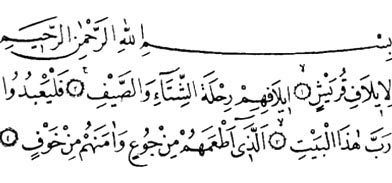 بِسْمِ اللهِ الرَّحْمٰنِ الرَّحِيمِ
لِاِيلَافِ قُرَيْشٍۙ ﴿١﴾ اِيلَافِهِمْ رِحْلَةَ الشِّتَٓاءِ وَالصَّيْفِۚ ﴿٢﴾ فَلْيَعْبُدُوا
رَبَّ هٰذَا الْبَيْتِۙ ﴿٣﴾ اَلَّذ۪ٓي اَطْعَمَهُمْ مِنْ جُوعٍ وَاٰمَنَهُمْ مِنْ خَوْفٍ ﴿٤﴾